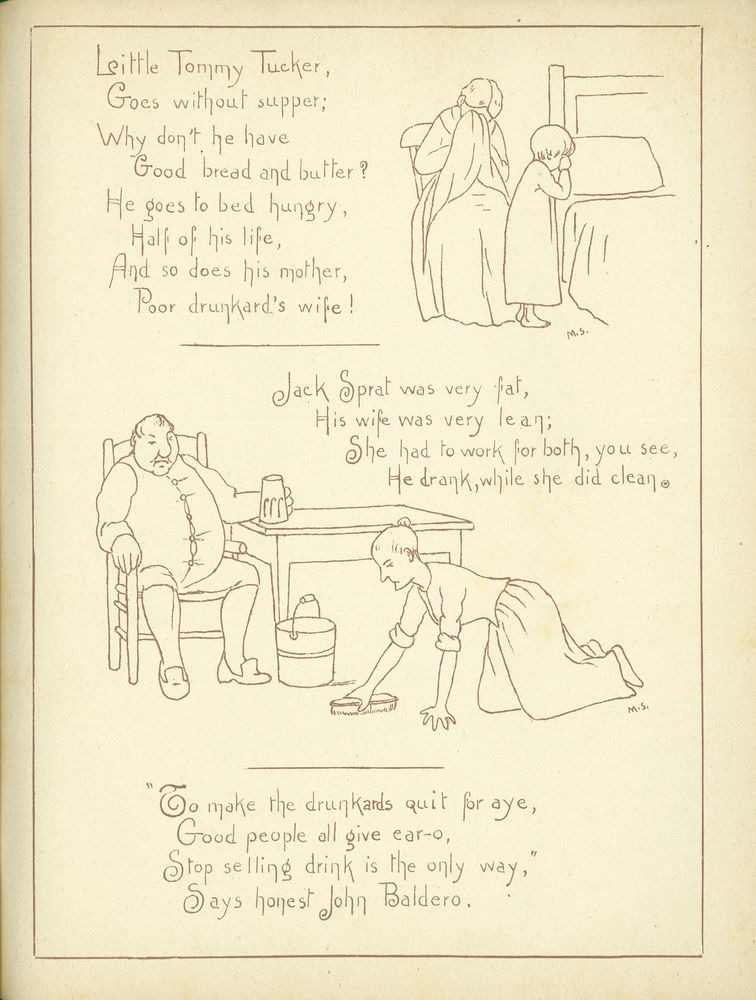 Little Tommy Tucker,
Goes without supper;
Why don't he have
Good bread and butter?
He goes to bed hungry,
Half of his life,
And so does his mother,
Poor drunkard's wife!
M.S.
Jack Sprat was very fat,
His wife was very lean;
She had to work for both, you see,
He drank, while she did clean.
M.S.
"To make the drunkards quit for aye,
Good people all give ear-o,
Stop selling drink is the only way,"
Says honest John Baldero.